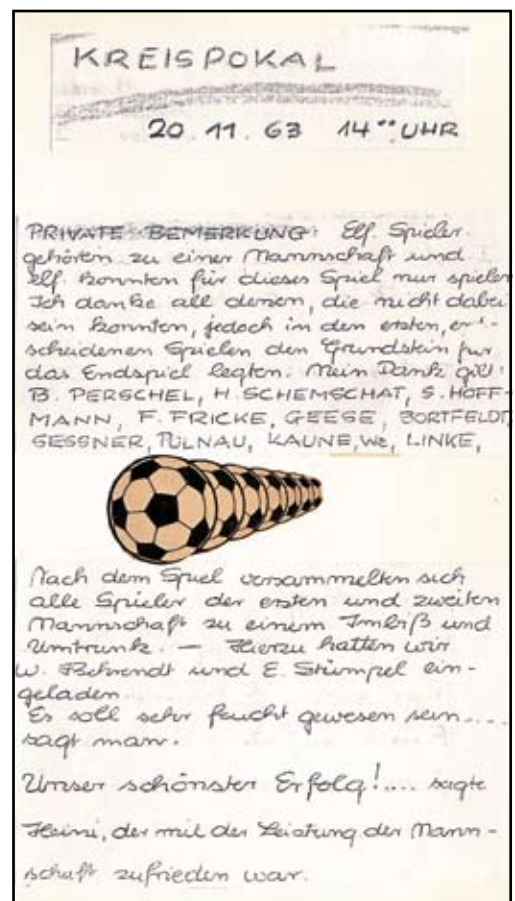 KREISPOKAL
20.11.63 14°° UHR
PRIVATE BEMERKUNG: Elf Spieler
gehörten zu einer Mannschaft und
elf konnten für dieses Spiel nur spielen
Ich danke all denen, die nicht dabei
sein konnten, jedoch in den ersten, ent-
scheidenen Spielen den Grundstein für
das Endspiel legten. Mein Dank gilt:
B. PERSCHEL, H. SCHEMSCHAT, S. HOFF-
MANN, F. FRICKE, GEESE, BORTFELDT,
GESSNER, PÜLNAU, KAUNE, WE, LINKE,
Nach dem Spiel versammelten sich
alle Spieler der ersten und zweiten
Mannschaft zu einem Imbiß und
Umtrunk. — Hierzu hatten wir
W. Behrendt und E. Stümpel ein-
geladen.
Es soll sehr feucht gewesen sein....
sagt man.
Unser schönster Erfolg!.... sagte
Heini, der mit der Leistung der Mann-
schaft zufrieden war.